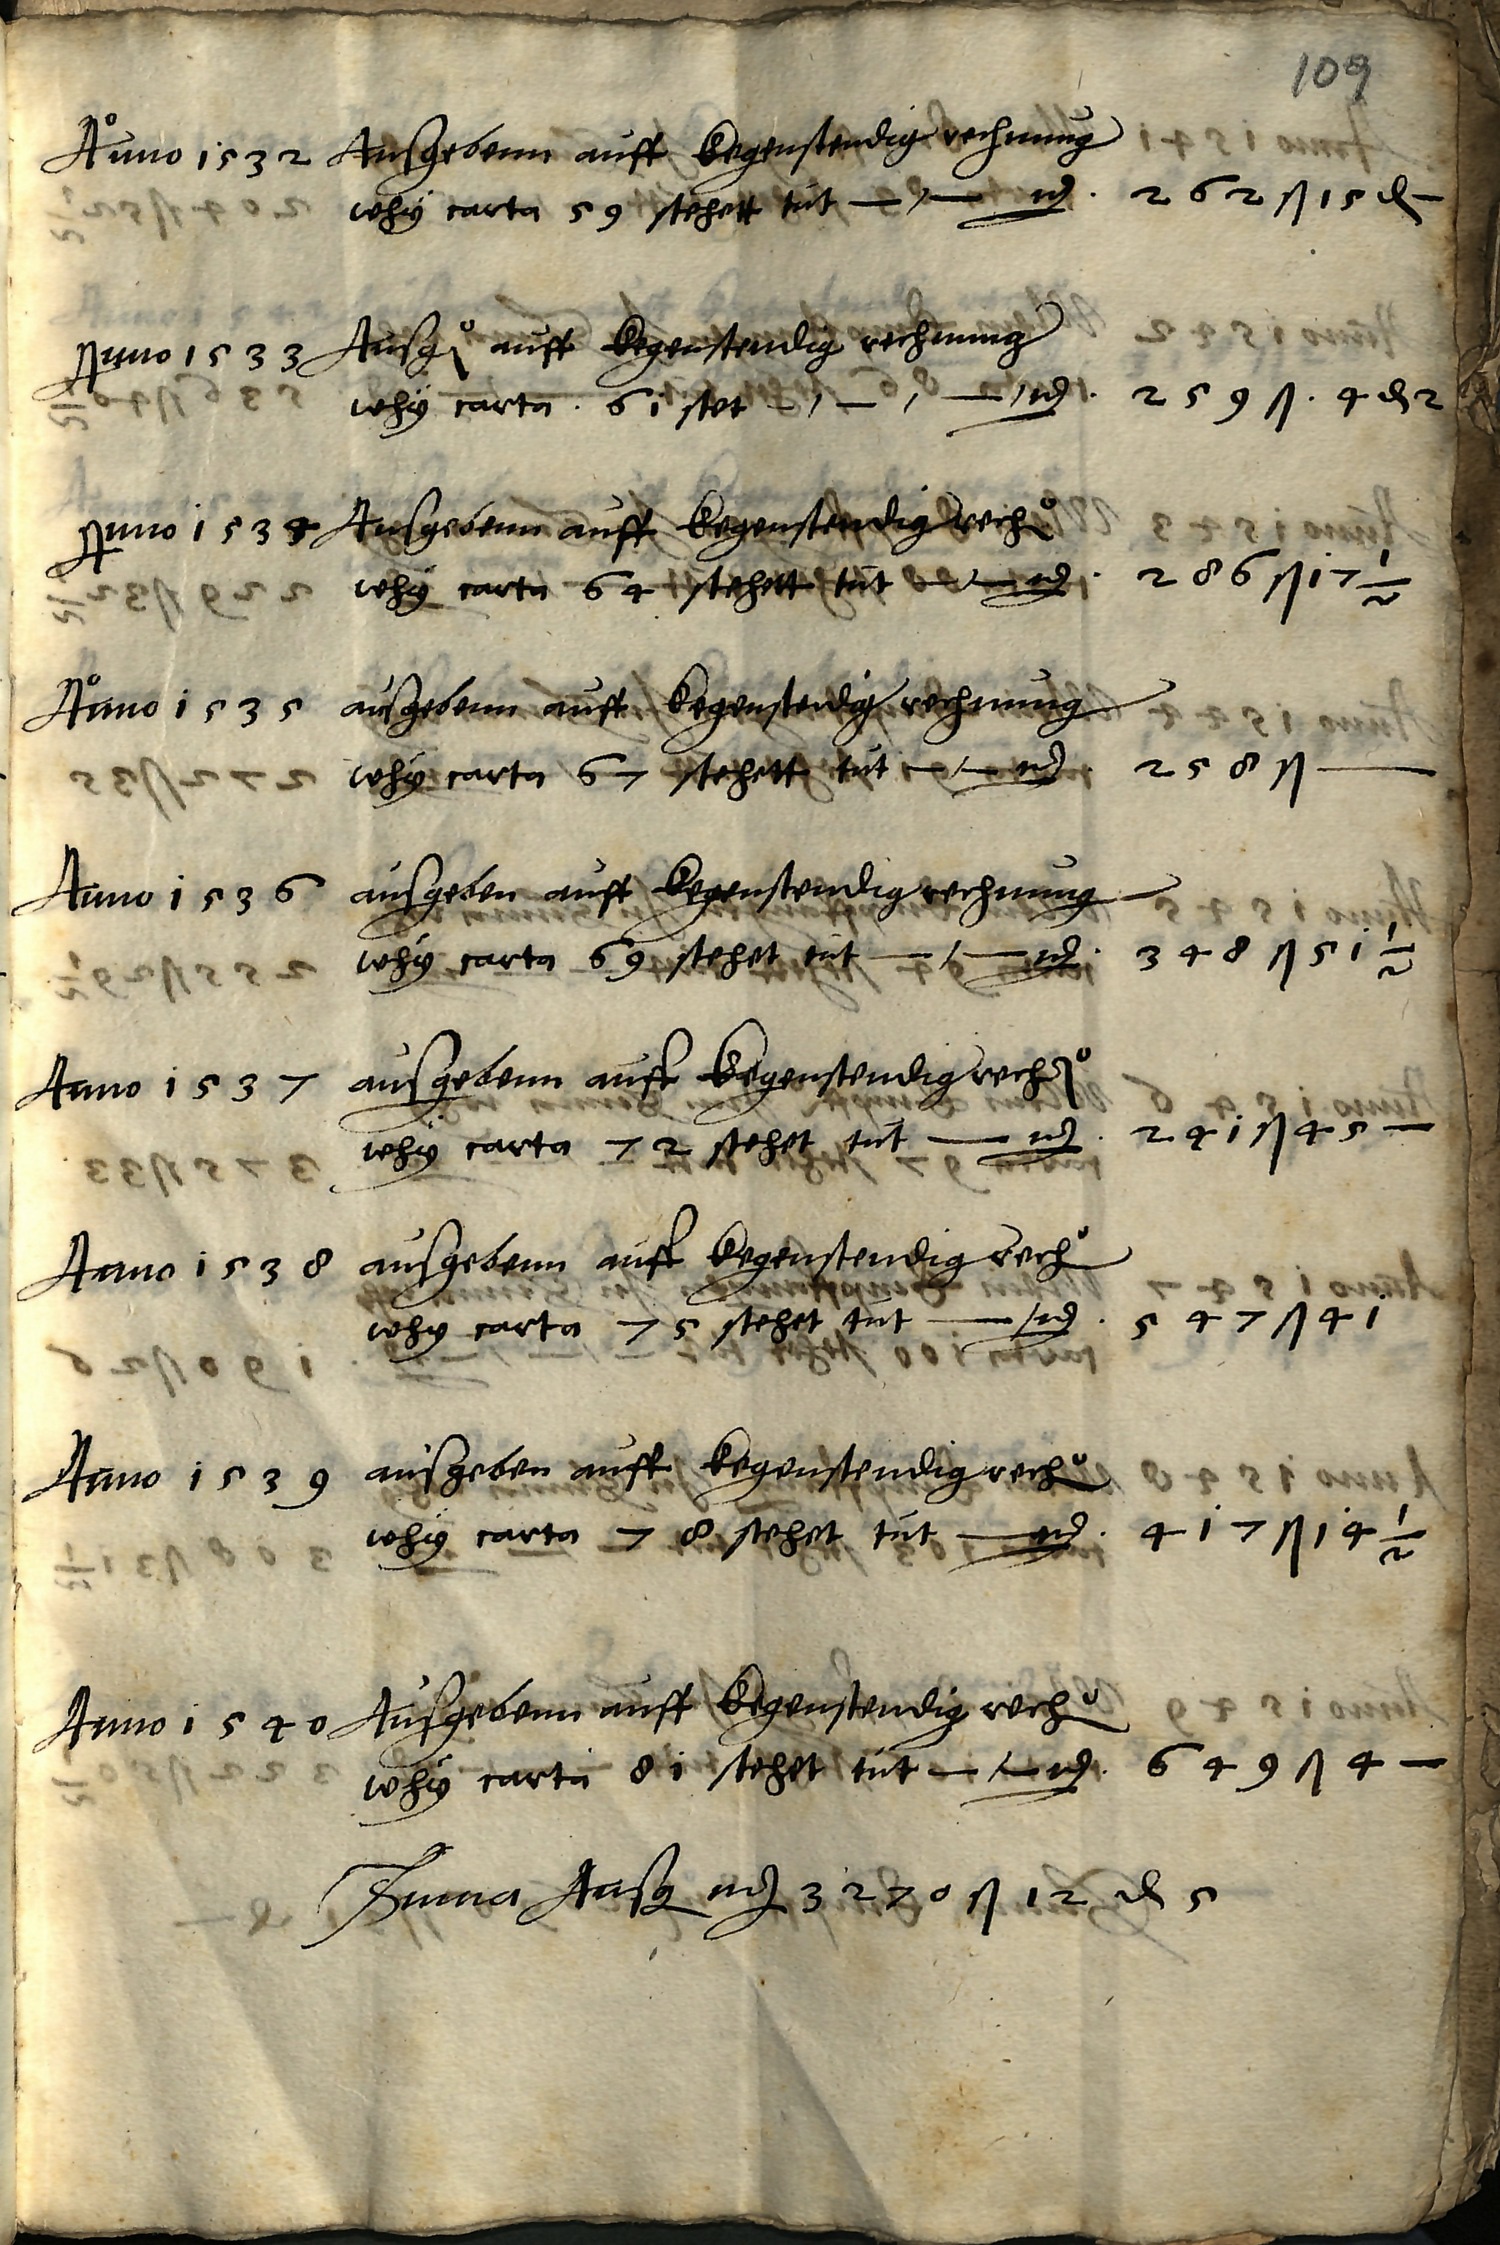 109
Anno 1532 Ausgebenn auff kegenstendig rechnung
whÿ carta 59 stehett tut — / — md. 262 ß 15 d —
Anno 1533 Ausg auff kegenstendig rechnung
whÿ carta . 61 stet — / — / — / md. 259 ß . 4 d 2
Anno 1534 Ausgebenn auff kegenstendig rech
whÿ carta 64 stehett tut — / — md. 286 ß 17 1/2
Anno 1535 ausgebenn auff kegenstendig rechnung
whÿ carta 67 stehett tut — / — md. 258 ß —
Anno 1536 ausgeben auff kegenstendig rechnung
whÿ carta 69 stehet tut — / — md. 348 ß 51 1/2
Anno 1537 ausgebenn auff kegenstendig rech
whÿ carta 72 stehet tut — md. 241 ß 45 —
Anno 1538 ausgebenn auff kegenstendig rech
whÿ carta 75 stehet tut — / md. 547 ß 41
Anno 1539 ausgeben auff kegenstendig rech
whÿ carta 78 stehet tut — md. 417 ß 14 1/2
Anno 1540 Ausgebenn auff kegenstendig rech
whÿ carta 81 stehet tut — / — md. 649 ß 4 —
Suma Ausg md 3270 ß 12 d 5